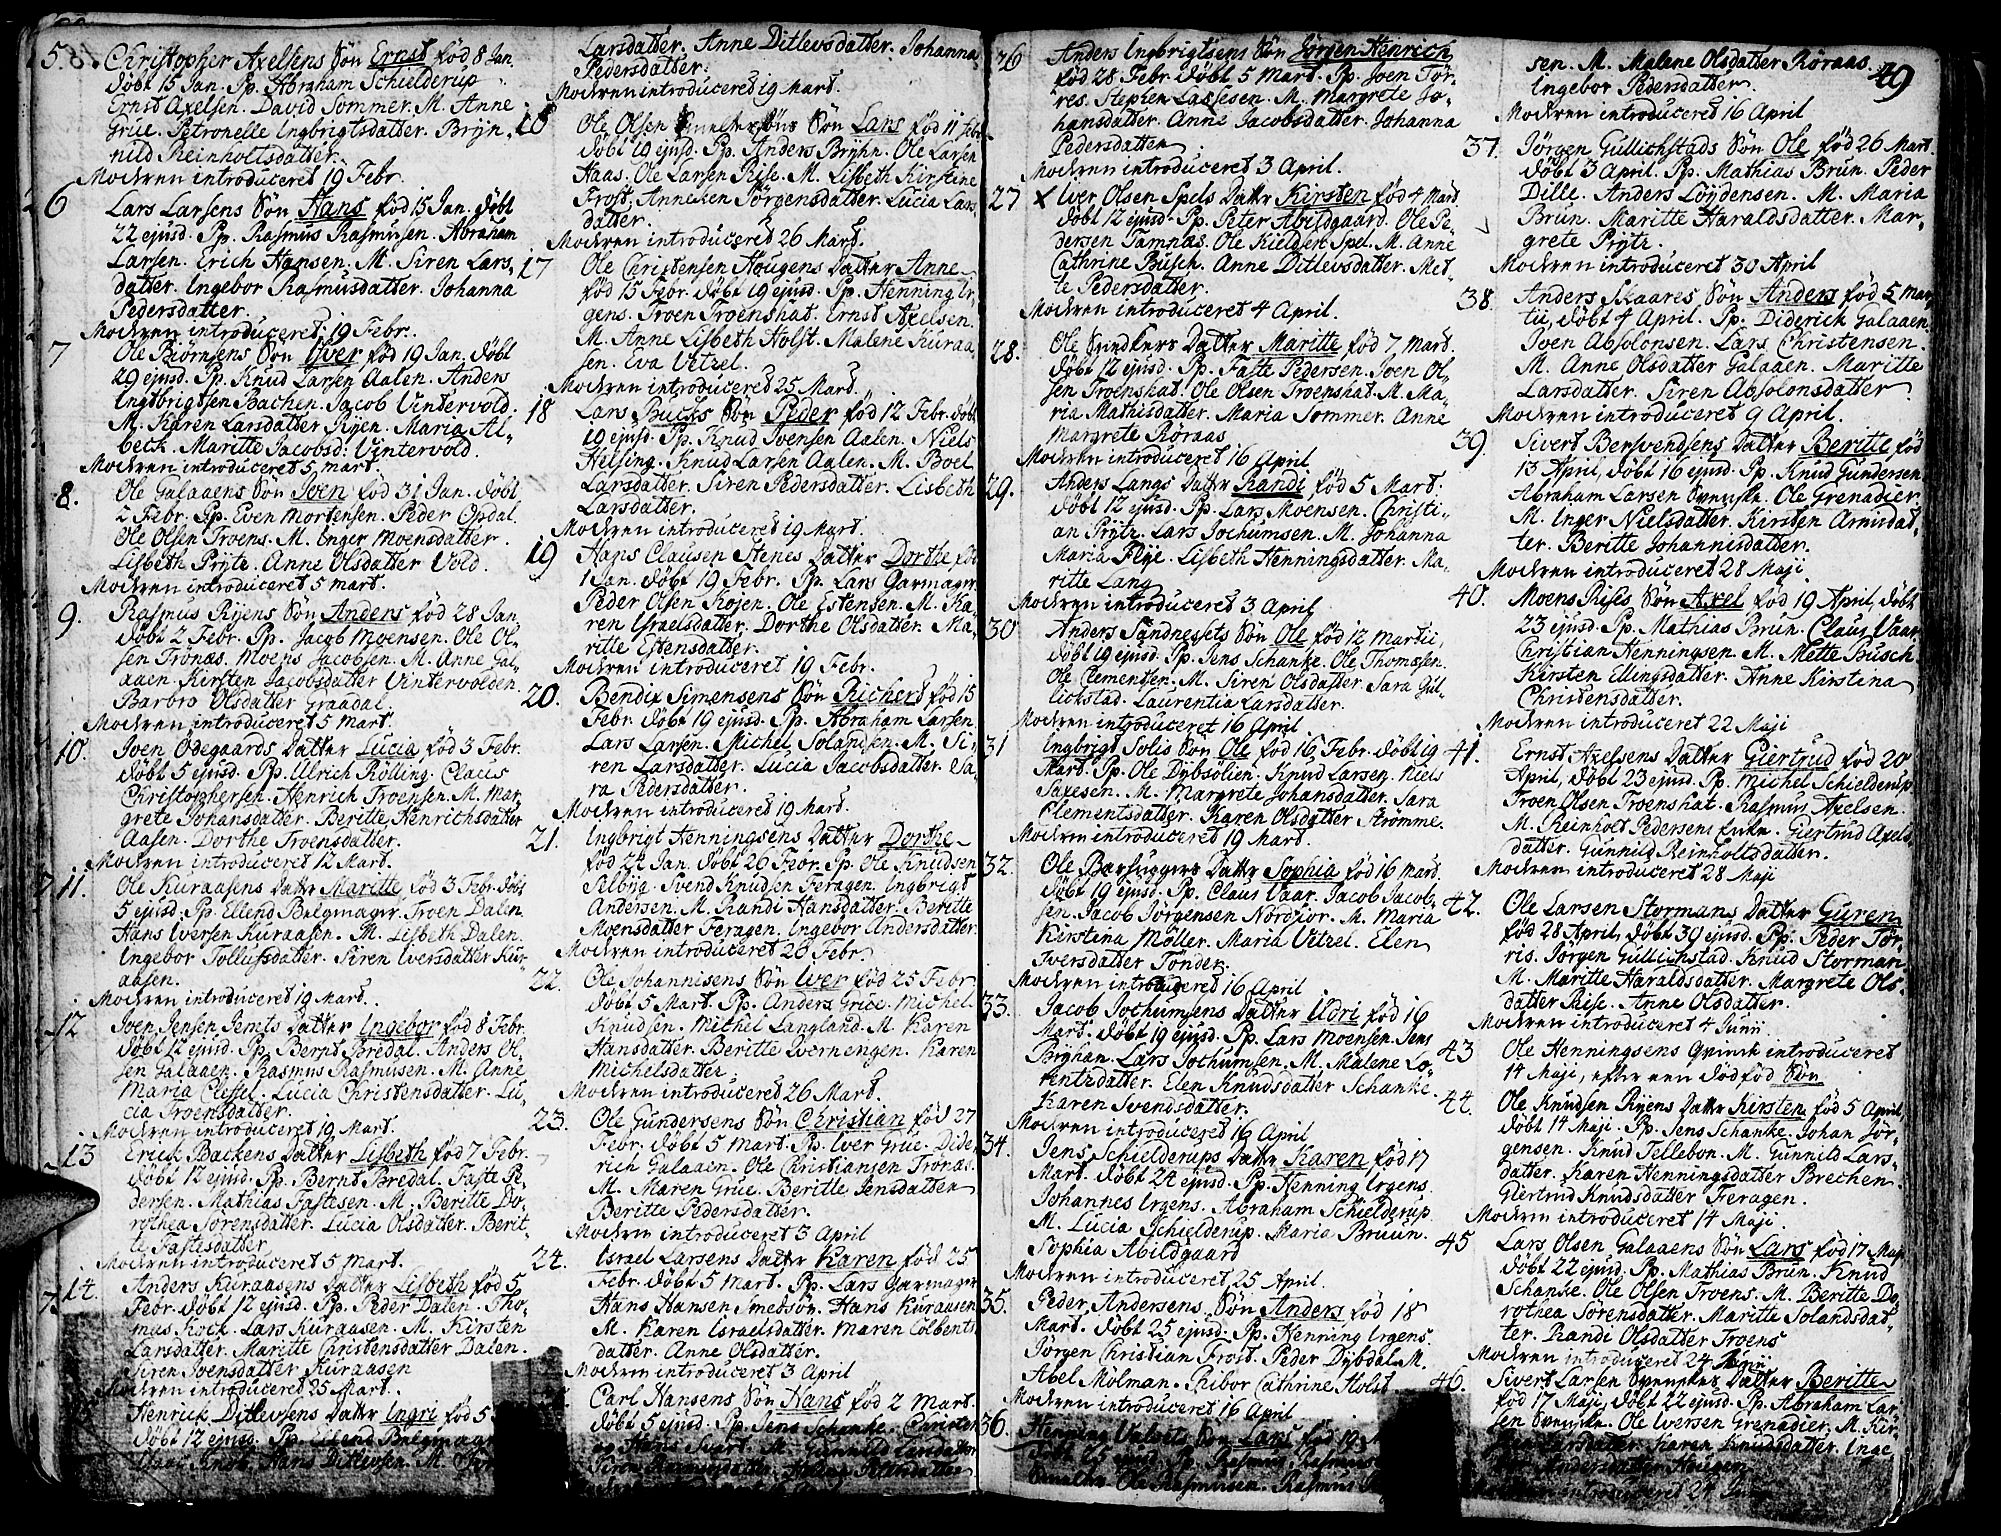 5. Christopher Axelsens Søn Ernst fød 8 Jan.
døbt 15 Jan. Pp. Abraham Schielderup
Ernst Axelsen. David Sommer. M. Anne
Grue. Petronelle Ingbrigtsdatter. Bryn-
nild Reinholtsdatter.
Modren introduceret 19 Febr.
6 Lars Larsens Søn Hans fød 15 Jan. døbt
22 ejusd. Pp. Rasmus Rasmusen. Abraham
Larsen. Erich Hansen. M. Siren Lars-
datter. Ingebor Rasmusdatter. Johanna
Pedersdatter.
Modren introduceret 19 Febr.
7 Ole Biörnsens Søn Iver fød 19 Jan. døbt
29 ejusd. Pp. Knud Larsen Aalen. Anders
Ingbrigtsen Bachen. Jacob Vintervold.
M. Karen Larsdatter Ryen. Maria Al-
bech. Maritte Jacobsd: Vintervold.
Modren introduceret 5 mart.
8. Ole Galaaens Søn Joen fød 31 Jan. døbt
2 Febr. Pp. Even Mortensen. Peder Opdal.
Ole Olsen Troens. M. Inger Moensdatter.
Lisbeth Prytz. Anne Olsdatter Vold.
Modren introduceret 5 mart.
9. Rasmus Ryens Søn Anders fød 28 Jan.
døbt 2 Febr. Pp. Jacob Moensen. Ole Ol-
sen Trönæs. Moens Jacobsen. M. Anne Gal-
aaen. Kirsten Jacobsdatter Vintervolden.
Barbro Olsdatter Graadal.
Modren introduceret 5 Mart.
10. Joen Ödegaards Datter Lucia fød 3 Febr.
døbt 5 ejusd. Pp. Ulrich Rölling. Claus
Christophersen. Henrich Troensen. M. Mar
grete Johansdatter. Beritte Henrichsdatter
Aasen. Dorthe Troensdatter.
Modren introduceret 12 Mart.
11. Ole Kuraasens Datter Maritte fød 3 Febr. døbt
5 ejusd. Pp. Ellend Belgmager. Troen Dalen.
Hans Iversen Kuraasen. M. Lisbeth Dalen.
Ingebor Tollufsdatter. Siren Iversdatter Kur-
aasen.
Modren introduceret 19 Mart.
12 Joen Jensen Jemts Datter Ingebor fød 8 Febr.
døbt 12 ejusd. Pp. Bernt Bredal. Anders Ol-
sen Galaaen. Rasmus Rasmusen. M. Anne
Maria Clessel. Lucia Christensdatter. Lu-
cia Troensdatter.
Modren introduceret 19 Mart.
13 Erich Backens Datter Lisbeth fød 7 Febr.
døbt 12 ejusd. Pp. Bernt Bredal. Faste Pe-
dersen. Mathias Fastesen. M. Beritte Do-
rothea Sörensdatter. Lucia Olsdatter. Berit-
te Fastesdatter
Modren introduceret 5 Mart.
14. Anders Kuraasens Datter Lisbeth fød 5
Febr. døbt 12 ejusd. Pp. Peder Dalen. Tho-
mas Kock. Lars Kuraasen. M. Kirsten
Larsdatter. Maritte Christensdatter Dalen.
Siren Joensdatter Kuraasen
Modren introduceret 25 Mart.
Henrich Ditlevsens Datter Ingri fød 5
døbt 12 ejusd. Pp. Ellend Belgmager
Hans Ditlevsen. M.
Larsdatter. Anne Ditlevsdatter. Johanna
Pedersdatter.
Modren introduceret 19 Mart.
16 Ole Olsen Søn Lars fød 11 Febr.
døbt 19 ejusd. Pp. Anders Bryhn. Ole Larsen
Haas. Ole Larsen Rise. M. Lisbeth Kirstine
Frost. Anneken Jörgensdatter. Lucia Lars-
datter.
Modren introduceret 26 Mart.
17 Ole Christensen Hougens Datter Anne
fød 15 Febr. døbt 19 ejusd. Pp. Henning Ir-
gens. Troen Troenshat. Ernst Axelsen.
M. Anne Lisbeth Holst. Malene Kuraa
sen. Eva Vetzel.
Modren introduceret 25 Mart.
18 Lars Bucks Søn Peder fød 12 Febr. døbt
19 ejusd. Pp. Knud Svensen Aalen. Niels
Helsing. Knud Larsen Aalen. M. Boel
Larsdatter. Siren Pedersdatter. Lisbeth
Larsdatter.
Modren introduceret 19 Mart.
19 Hans Clausen Stenes Datter Dorthe fød
1 Jan. døbt 19 Febr. Pp. Lars Garmager.
Peder Olsen Kojen. Ole Estensen. M. Ka-
ren Israelsdatter. Dorthe Olsdatter. Ma-
ritte Estensdatter.
Modren introduceret 19 Febr.
20. Bendix Simensens Søn Richert fød 15
Febr. døbt 19 ejusd. Pp. Abraham Larsen.
Lars Larsen. Michel Solandsen. M. Si-
ren Larsdatter. Lucia Jacobsdatter. Sa-
ra Pedersdatter.
Modren introduceret 19 Mart.
21. Ingbrigt Henningsens Datter Dorthe
fød 24 Jan. døbt 26 Febr. Pp. Ole Knudsen
Selboe. Svend Knudsen Feragen. Ingbrigt
Andersen. M. Randi Hansdatter. Beritte
Moensdatter Feragen. Ingebor Andersdatter.
Modren introduceret 26 Febr.
22. Ole Johannisens Søn Iver fød 25 Febr.
døbt 5 Mart. Pp. Anders Grüe. Michel
Knudsen. Michel Langland. M. Karen
Hansdatter. Beritte Evernengen. Karen
Michelsdatter.
Modren introduceret 26 Mart.
23. Ole Gundersens Søn Christian fød 27
Febr. døbt 5 Mart. Pp. Iver Grue. Dide-
rich Galaaen. Ole Christiansen Trönæs.
M. Maren Grue. Beritte Jensdatter
Beritte Pedersdatter.
Modren introduceret 3 April
24. Israel Larsens Datter Karen fød 25
Febr. døbt 5 Mart. Pp. Lars Garmager
Hans Hansen Smedsön. Hans Kuraasen
M. Karen Israelsdatter. Maren Colbents
datter. Anne Olsdatter.
Modren introduceret 3 April
Carl Hansens Søn Hans fød 2 Mart.
døbt 5 ejusd. Pp. Jens Schanke. Christen
og Hans Svart. M. Gunnild
Siren Rasmusdatter.
26 Anders Ingbrigtsens Søn Jörgen Henrich
fød 28 Febr. døbt 5 Mart. Pp. Joen Tör-
res. Stephen Lassesen. M. Margrete Jo-
hansdatter. Anne Jacobsdatter. Johanna
Pedersdatter
Modren introduceret 3 April.
27 x Iver Olsen Spels Datter Kirsten fød 4 Mart.
døbt 12 ejusd. Pp. Peter Abildgaard. Ole Pe-
dersen Tamnæs. Ole Kieldsen Spel. M. Anne
Cathrine Busch. Anne Ditlevsdatter. Met-
te Pedersdatter.
Modren introduceret 4 April.
28. Ole Sundkers Datter Maritte fød 7 Mart.
døbt 12 ejusd. Pp. Faste Pedersen. Joen Ol-
sen Troenshat. Ole Olsen Troenshat. M. Ma-
ria Mathisdatter. Maria Sommer. Anne
Margrete Röraas
Modren introduceret 16 April
29. Anders Langs Datter Randi fød 5 Mart.
døbt 12 ejusd. Pp. Lars Moensen. Christi-
an Prytz. Lars Jochumsen. M. Johanna
Maria Flye. Lisbeth Henningsdatter. Ma-
ritte Lang
Modren introduceret 3 April
30 Anders Sandnessets Søn Ole fød 12 Martii,
døbt 19 ejusd. Pp. Jens Schanke. Ole Thomesen.
Ole Clementsen. M. Siren Olsdatter. Sara Gul-
lickstad. Laurentia Larsdatter.
Modren introduceret 16 April
31 Ingbrigt Solis Søn Ole fød 16 Febr. døbt 19
Mart. Pp. Ole Dybsölien. Knud Larsen. Niels
Saxesen. M. Margrete Johansdatter. Sara
Clementsdatter. Karen Olsdatter Strömme.
Modren introduceret 19 Mart.
32. Ole Barhuggers Datter Sophia fød 16 Mart.
døbt 19 ejusd. Pp. Claus Vaar. Jacob Jacob-
sen. Jacob Jörgensen Nordfior. M. Maria
Kirstina Möller. Maria Vetzel. Elen
Iversdatter Tönder.
Modren introduceret 16 April
33. Jacob Jochumsens Datter Ildri fød 16
Mart. døbt 19 ejusd. Pp. Lars Moensen. Jens
Bryhan. Lars Jochumsen. M. Malene Lo-
rentzdatter. Elen Knudsdatter Schanke.
Karen Svendsdatter.
Modren introduceret 16 April
34. Jens Schielderups Datter Karen fød 17
Mart. døbt 24 ejusd. Pp. Henning Irgens.
Johannes Irgens. Abraham Schielderup.
M. Lucia Schielderup. Maria Bruun.
Sophia Abildgaard
Modren introduceret 25 April.
35. Peder Andersens Søn Anders fød 18
Mart. døbt 25 ejusd. Pp. Henning Irgens.
Jörgen Christian Frost. Peder Dybdal. M.
Abel Molman. Chibor Cathrine Holst
Modren introduceret 16 April
36. Henning Søn Lars fød 19
døbt 25 ejusd. Pp. Rasmus Rasmusen
Ole Rasmusen. Rasmus
49
sen. M. Malene Olsdatter Röraas.
Ingebor Pedersdatter.
Modren introduceret 16 April
37. Jörgen Gullichstads Søn Ole fød 26 Mart.
døbt 3 April. Pp. Mathias Brun. Peder
Dille. Anders Löydensen. M. Maria
Brun. Maritte Haraldsdatter. Mar-
grete Prytz.
Modren introduceret 30 April
38. Anders Skaares Søn Anders fød 5 Mar
tii, døbt 4 April. Pp. Diderich Galaaen.
Joen Absolonsen. Lars Christensen.
M. Anne Olsdatter Galaaen. Maritte
Larsdatter. Siren Absolonsdatter
Modren introduceret 9 April.
39. Sivert Bersvendsens Datter Beritte fød
13 April, døbt 16 ejusd. Pp. Knud Gundersen
Abraham Larsen Svenske. Ole Grenadier
M. Inger Nielsdatter. Kirsten Arnisdat-
ter. Beritte Johannisdatter.
Modren introduceret 28 Maji.
40. Moens Rises Søn Axel fød 19 April, døbt
23 ejusd. Pp. Mathias Brun. Claus Vaar.
Christian Henningsen. M. Mette Busch.
Kirsten Ellingsdatter. Anne Kirstina
Christensdatter.
Modren introduceret 22 Maji
41. Ernst Axelsens Datter Giertrud fød 20
April, døbt 23 ejusd. Pp. Michel Schielderup
Troen Olsen Troenshat. Rasmus Axelsen.
M. Reinholt Pedersens Enke. Giertrud Axels
datter. Gunnild Reinholtsdatter.
Modren introduceret 28 Maji
42. Ole Larsen Stormans Datter Guren
fød 28 April, døbt 30 ejusd. Pp. Peder Tör-
ris. Jörgen Gullichstad. Knud Storman.
M. Maritte Haraldsdatter. Margrete Ols-
datter Rise. Anne Olsdatter.
Modren introduceret 4 Junii.
43 Ole Henningsens Qvinde introduceret
14 Maji, efter een dödfød Søn
44. Ole Knudsen Ryens Datter Kirsten fød 5 April
døbt 14 Maji. Pp. Jens Schanke. Johan Jör-
gensen. Knud Tellebon. M. Gunnild Lars-
datter. Karen Henningsdatter Brechen.
Giertrud Knudsdatter Feragen.
Modren introduceret 14 Maji.
45 Lars Olsen Galaaens Søn Lars fød 17 Maji
døbt 22 ejusd. Pp. Mathias Brun. Knud
Schanke. Ole Olsen Troens. M. Beritte Do-
rothea Sörensdatter. Maritte Solandsdat-
ter. Randi Olsdatter Troens
Modren introduceret 24 Junii
46. Sivert Larsen Svenskes Datter Beritte
fød 17 Maji, døbt 22 ejusd. Pp. Abraham Lar-
sen Svenske. Ole Iversen Grenadier. M. Kir-
sten Larsdatter. Karen Knudsdatter. Inge
bor Andersdatter Hougen
Modren introduceret 24 Junii